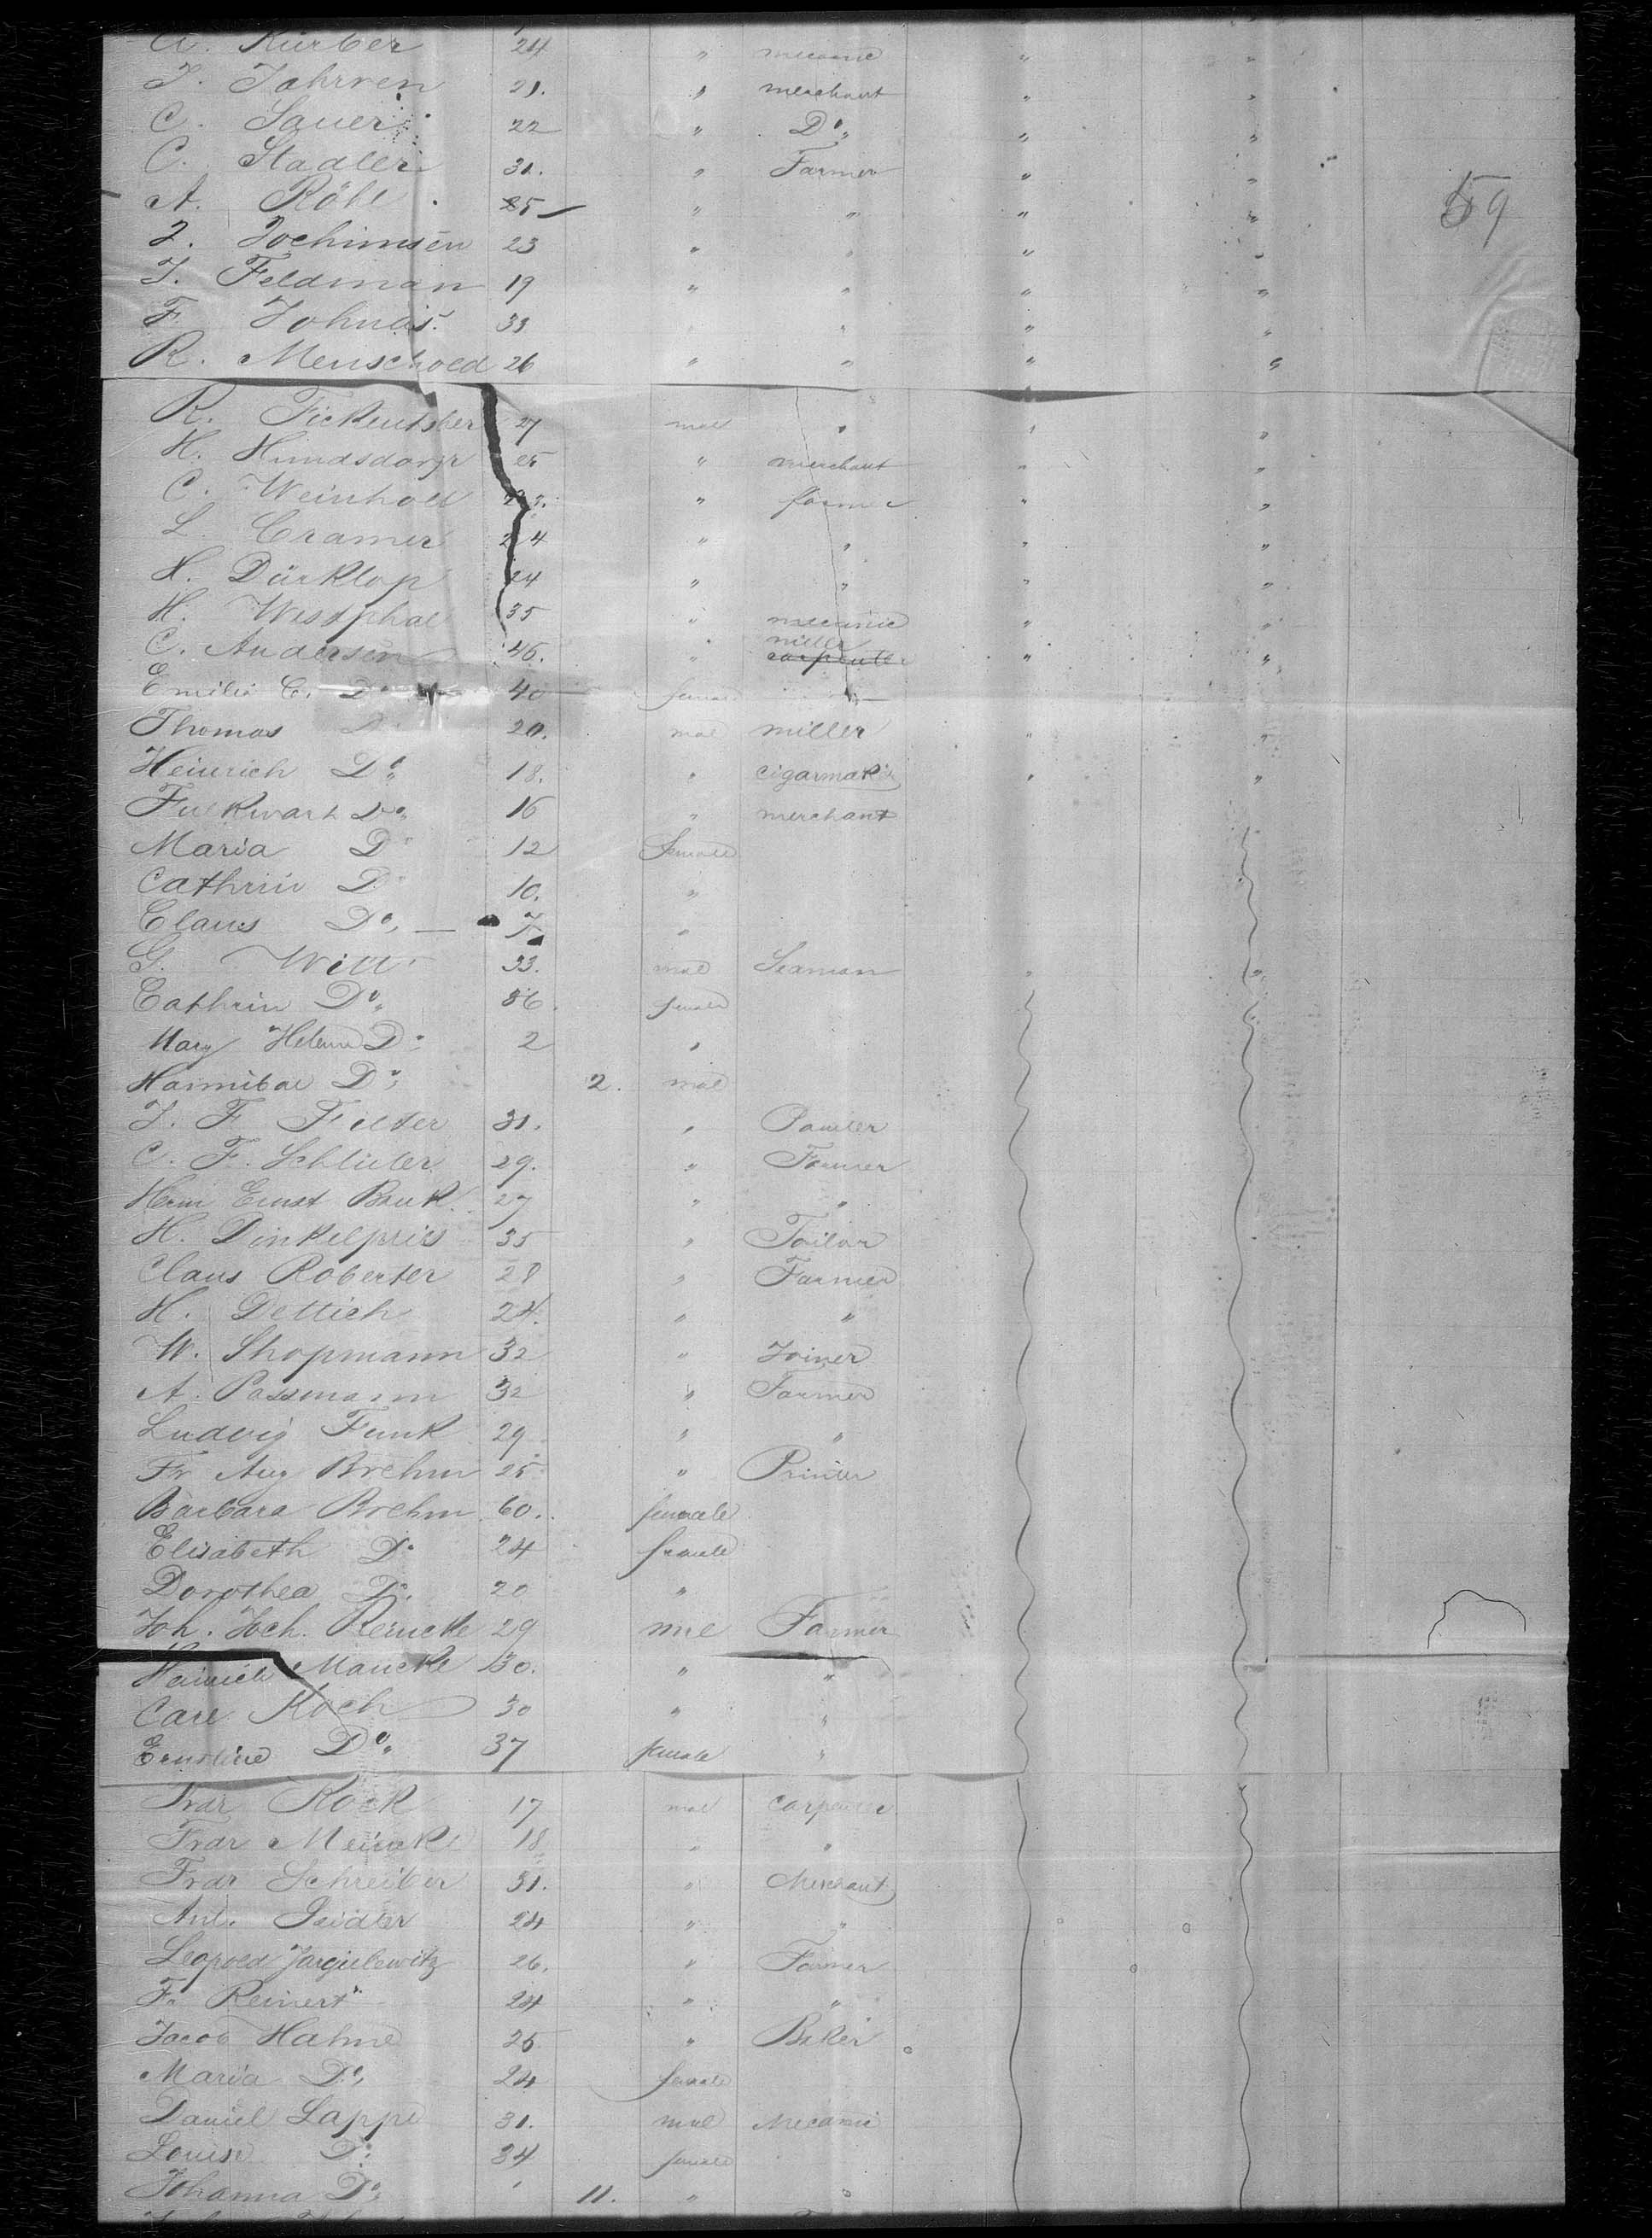 Kürber 24 " mecanic " "
J. Jahrren 21. " merchant " "
C. Sauer 22 " Do " "
C. Stadler 31. " Farmer " "
A. Röhl 25 " " " "
59
J. Jochimsen 23 " " " "
J. Feldman 19 " " " "
F. Johnas. 33 " " "
R. Menschoed 26 " " " "
R. 27 mal " " "
H. Himdsdorf 25 " merchant " "
C. Weinhold 23. " farmer " "
L. Cramer 24 " " " "
H. Dürklop 24 " " " "
H. Westphal 35 " mecanic " "
miller
C. Andersen 46. " carpenter " "
Emilie C. Do 40 female
Thomas Do 20. mal miller " "
Heinrich Do 18. " cigarmaker " "
Do 16 " merchant
Maria Do 12 female
Cathrin Do 10. "
Claus Do, — 7 "
G. Witt 33. mal Seaman " "
Cathrin Do 36. female
Mary Helena Do 2 "
Hannibal Do 2. mal
J. F. Felter 31. "
C. F. Schlüter 29. " Farmer
Herm Ernst Bauk. 27 " "
H. Dinkelpries 35 " Tailor
Claus Roberter 28 " Farmer
H. Dettich 24. " "
W. Shopmann 32 " Joiner
A. Passmann 32 " Farmer
Ludvig Funk 29 " "
Fr Aug Brehm 25 " Printer
Barbara Brehm 60. female
Elisabeth Do 24 female
Dorothea Do 20 "
Joh. Joch. Reincke 29 mal Farmer
Heinrich Mancke 30. " "
Carl Koch 30 " "
Ernstine Do 37 female "
Frdr Kock 17 mal carpenter
Frdr Meinck 18 " "
Frdr Schreiber 31. " Merchant
Ant. Seidler 24 " "
Leopold Jargulewitz 26. " Farmer
Fr Reinert 24 " "
Jacob Hahne 25 " Baker
Maria Do, 24 female
Daniel Lappe 31. mal Mecanic
Louise Do 34 female
Johanna Do 11. "